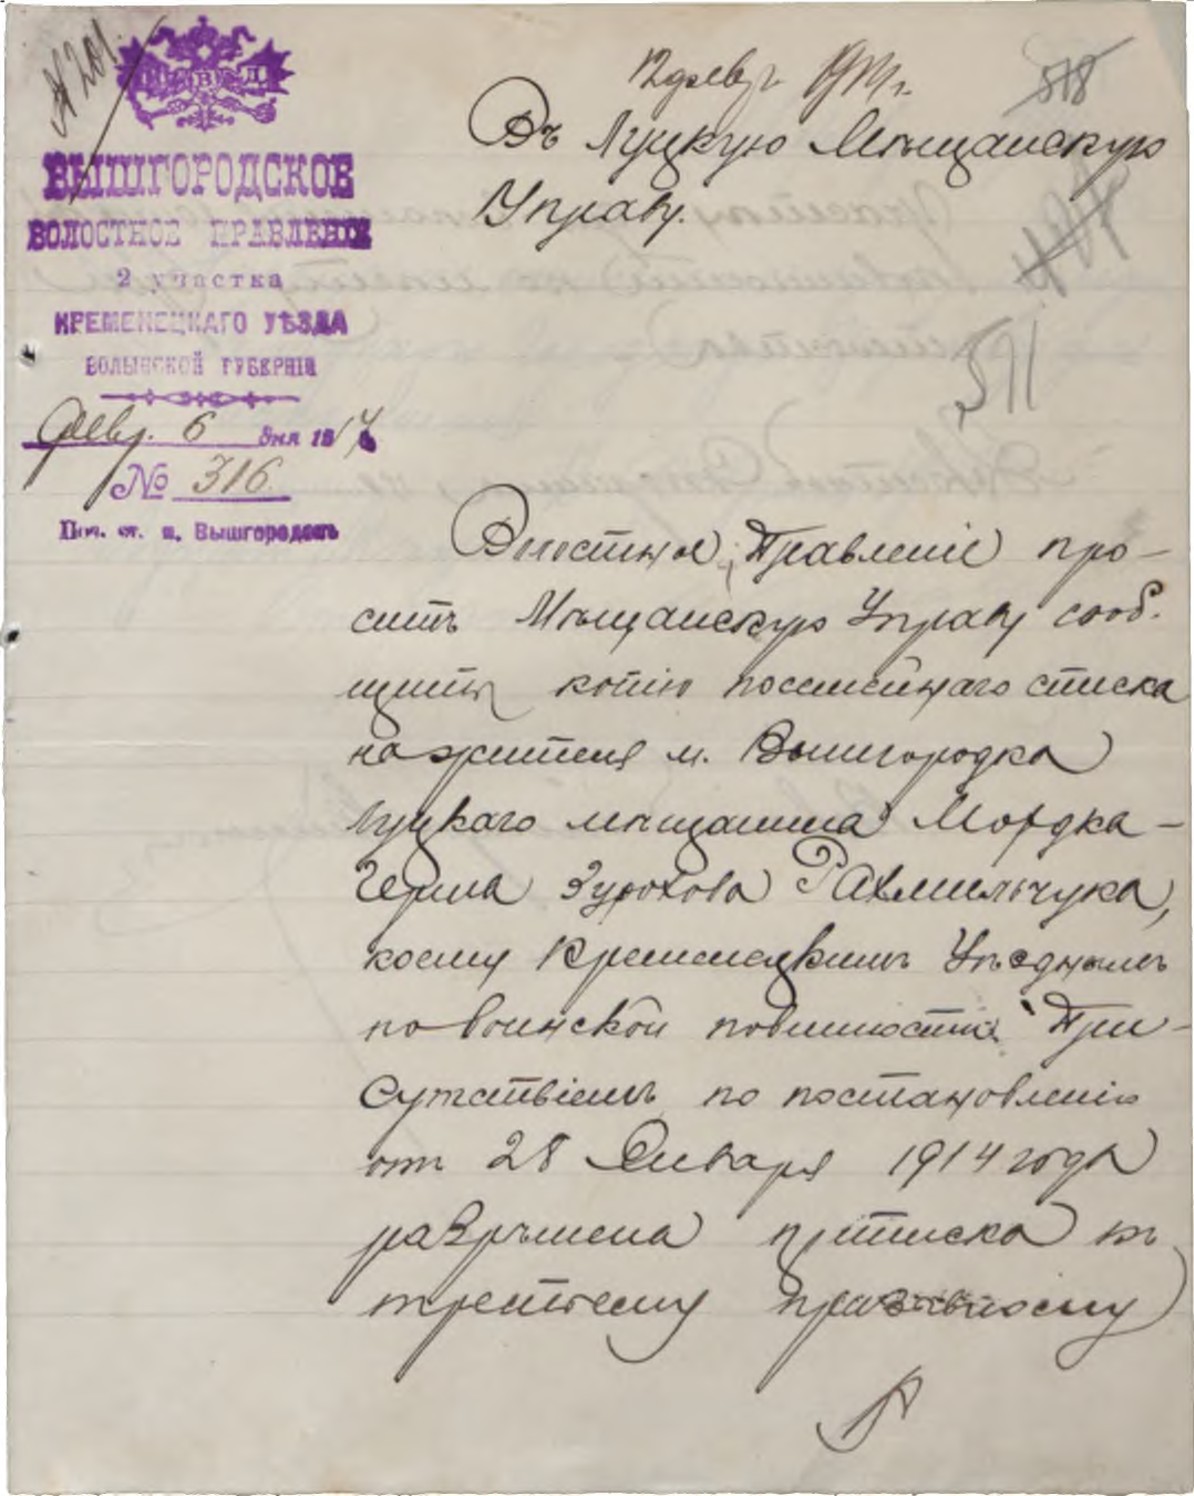 № 201.
М.В.Д.
ВЫШГОРОДСКОЕ
ВОЛОСТНОЕ ПРАВЛЕНIЕ
2 участка
КРЕМЕНЕЦКАГО УѢЗДА
ВОЛЫНСКОЙ ГУБЕРНIИ
Февр. 6 дня 1914
№ 316.
Поч. ст. м. Вышгородокъ
12 февр. 1914 г.
518
Въ Луцкую Мѣщанскую
Управу.
511
Волостное Правленiе про-
ситъ Мѣщанскую Управу сооб-
щить копiю посемейнаго списка
на жителя м. Вышгородка
Луцкаго мѣщанина Мордка-
Герша Зурохова Рахмильчука,
коему Кременецкимъ Уѣзднымъ
по воинской повинности При-
сутствiемъ по постановленiю
отъ 28 Января 1914 года
разрѣшена приписка къ
третьему призывному